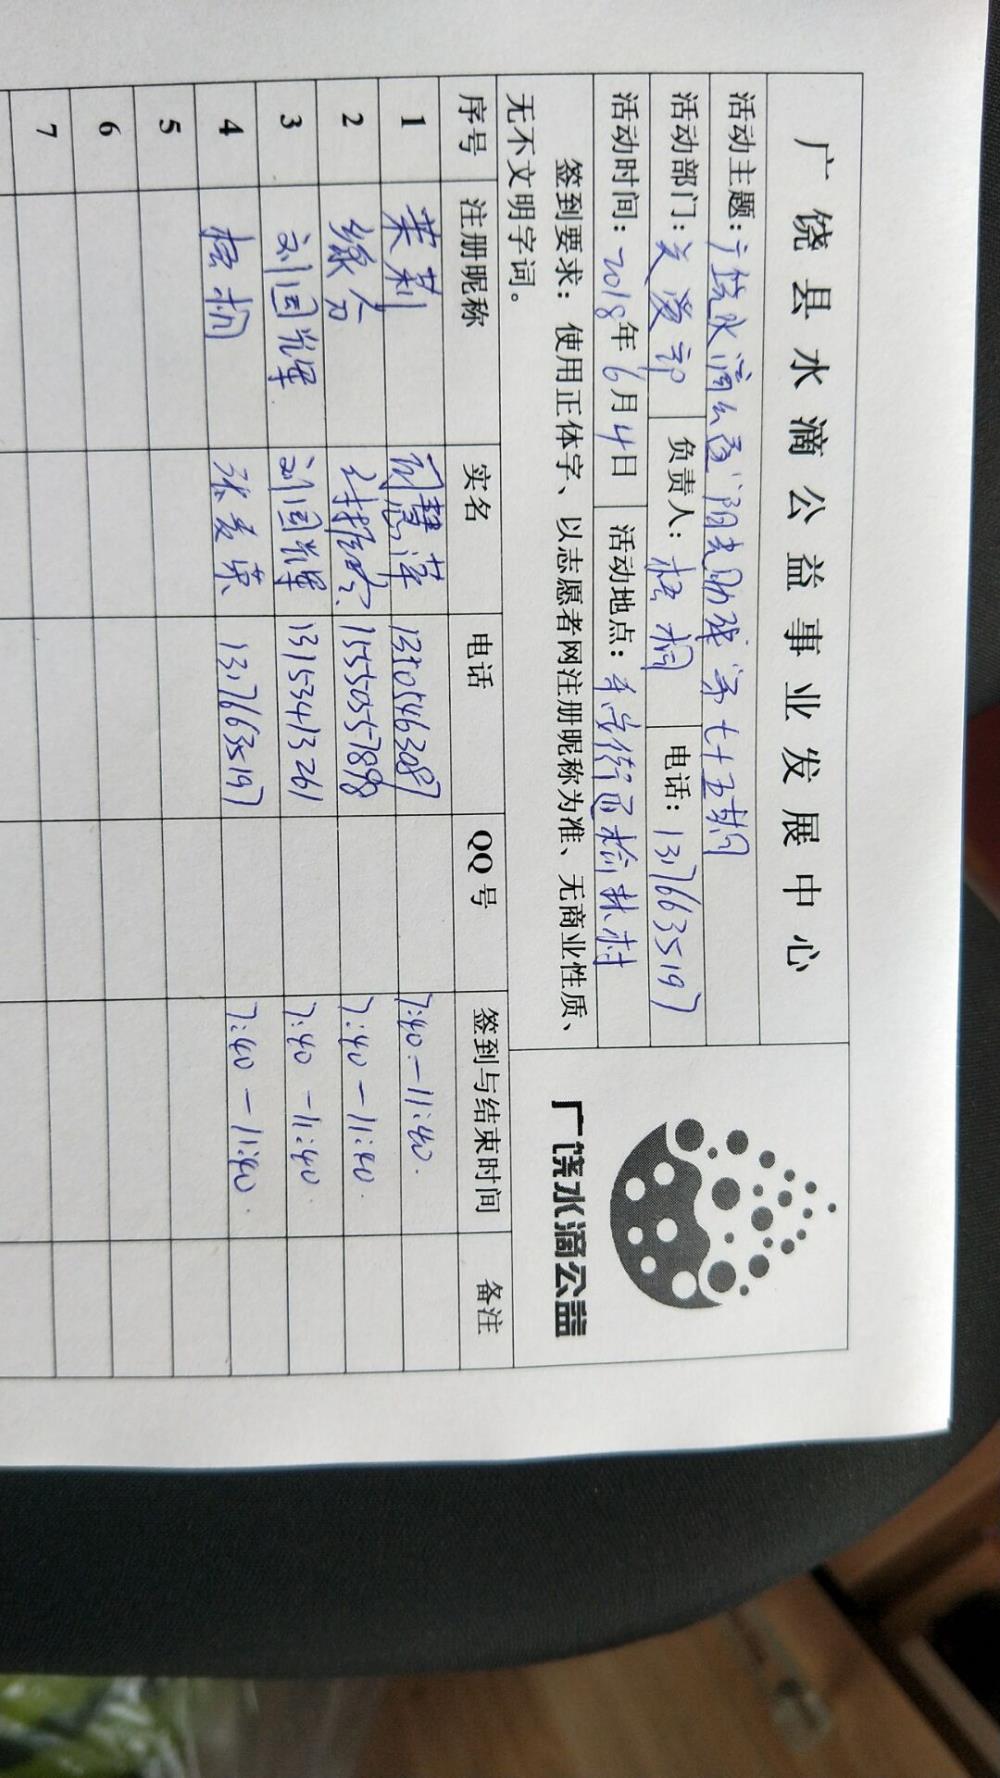 广饶县水滴公益事业发展中心
活动主题：广饶水滴公益"阳光助残"第七十五期
活动部门：关爱部 负责人：梧桐 电话：13176635197
活动时间：2018年6月4日 活动地点：乐安街道榆林村
签到要求：使用正体字、以志愿者网注册昵称为准、无商业性质、
无不文明字词。
广饶水滴公益
序号 注册昵称 实名 电话 QQ号 签到与结束时间 备注
1 茉莉 慧萍 13705463087 7:40-11:40.
2 缘分 15550557898 7:40-11:40.
3 刘国辉 刘国辉 13153413261 7:40-11:40.
4 梧桐 张爱荣 13176635197 7:40-11:40.
5
6
7